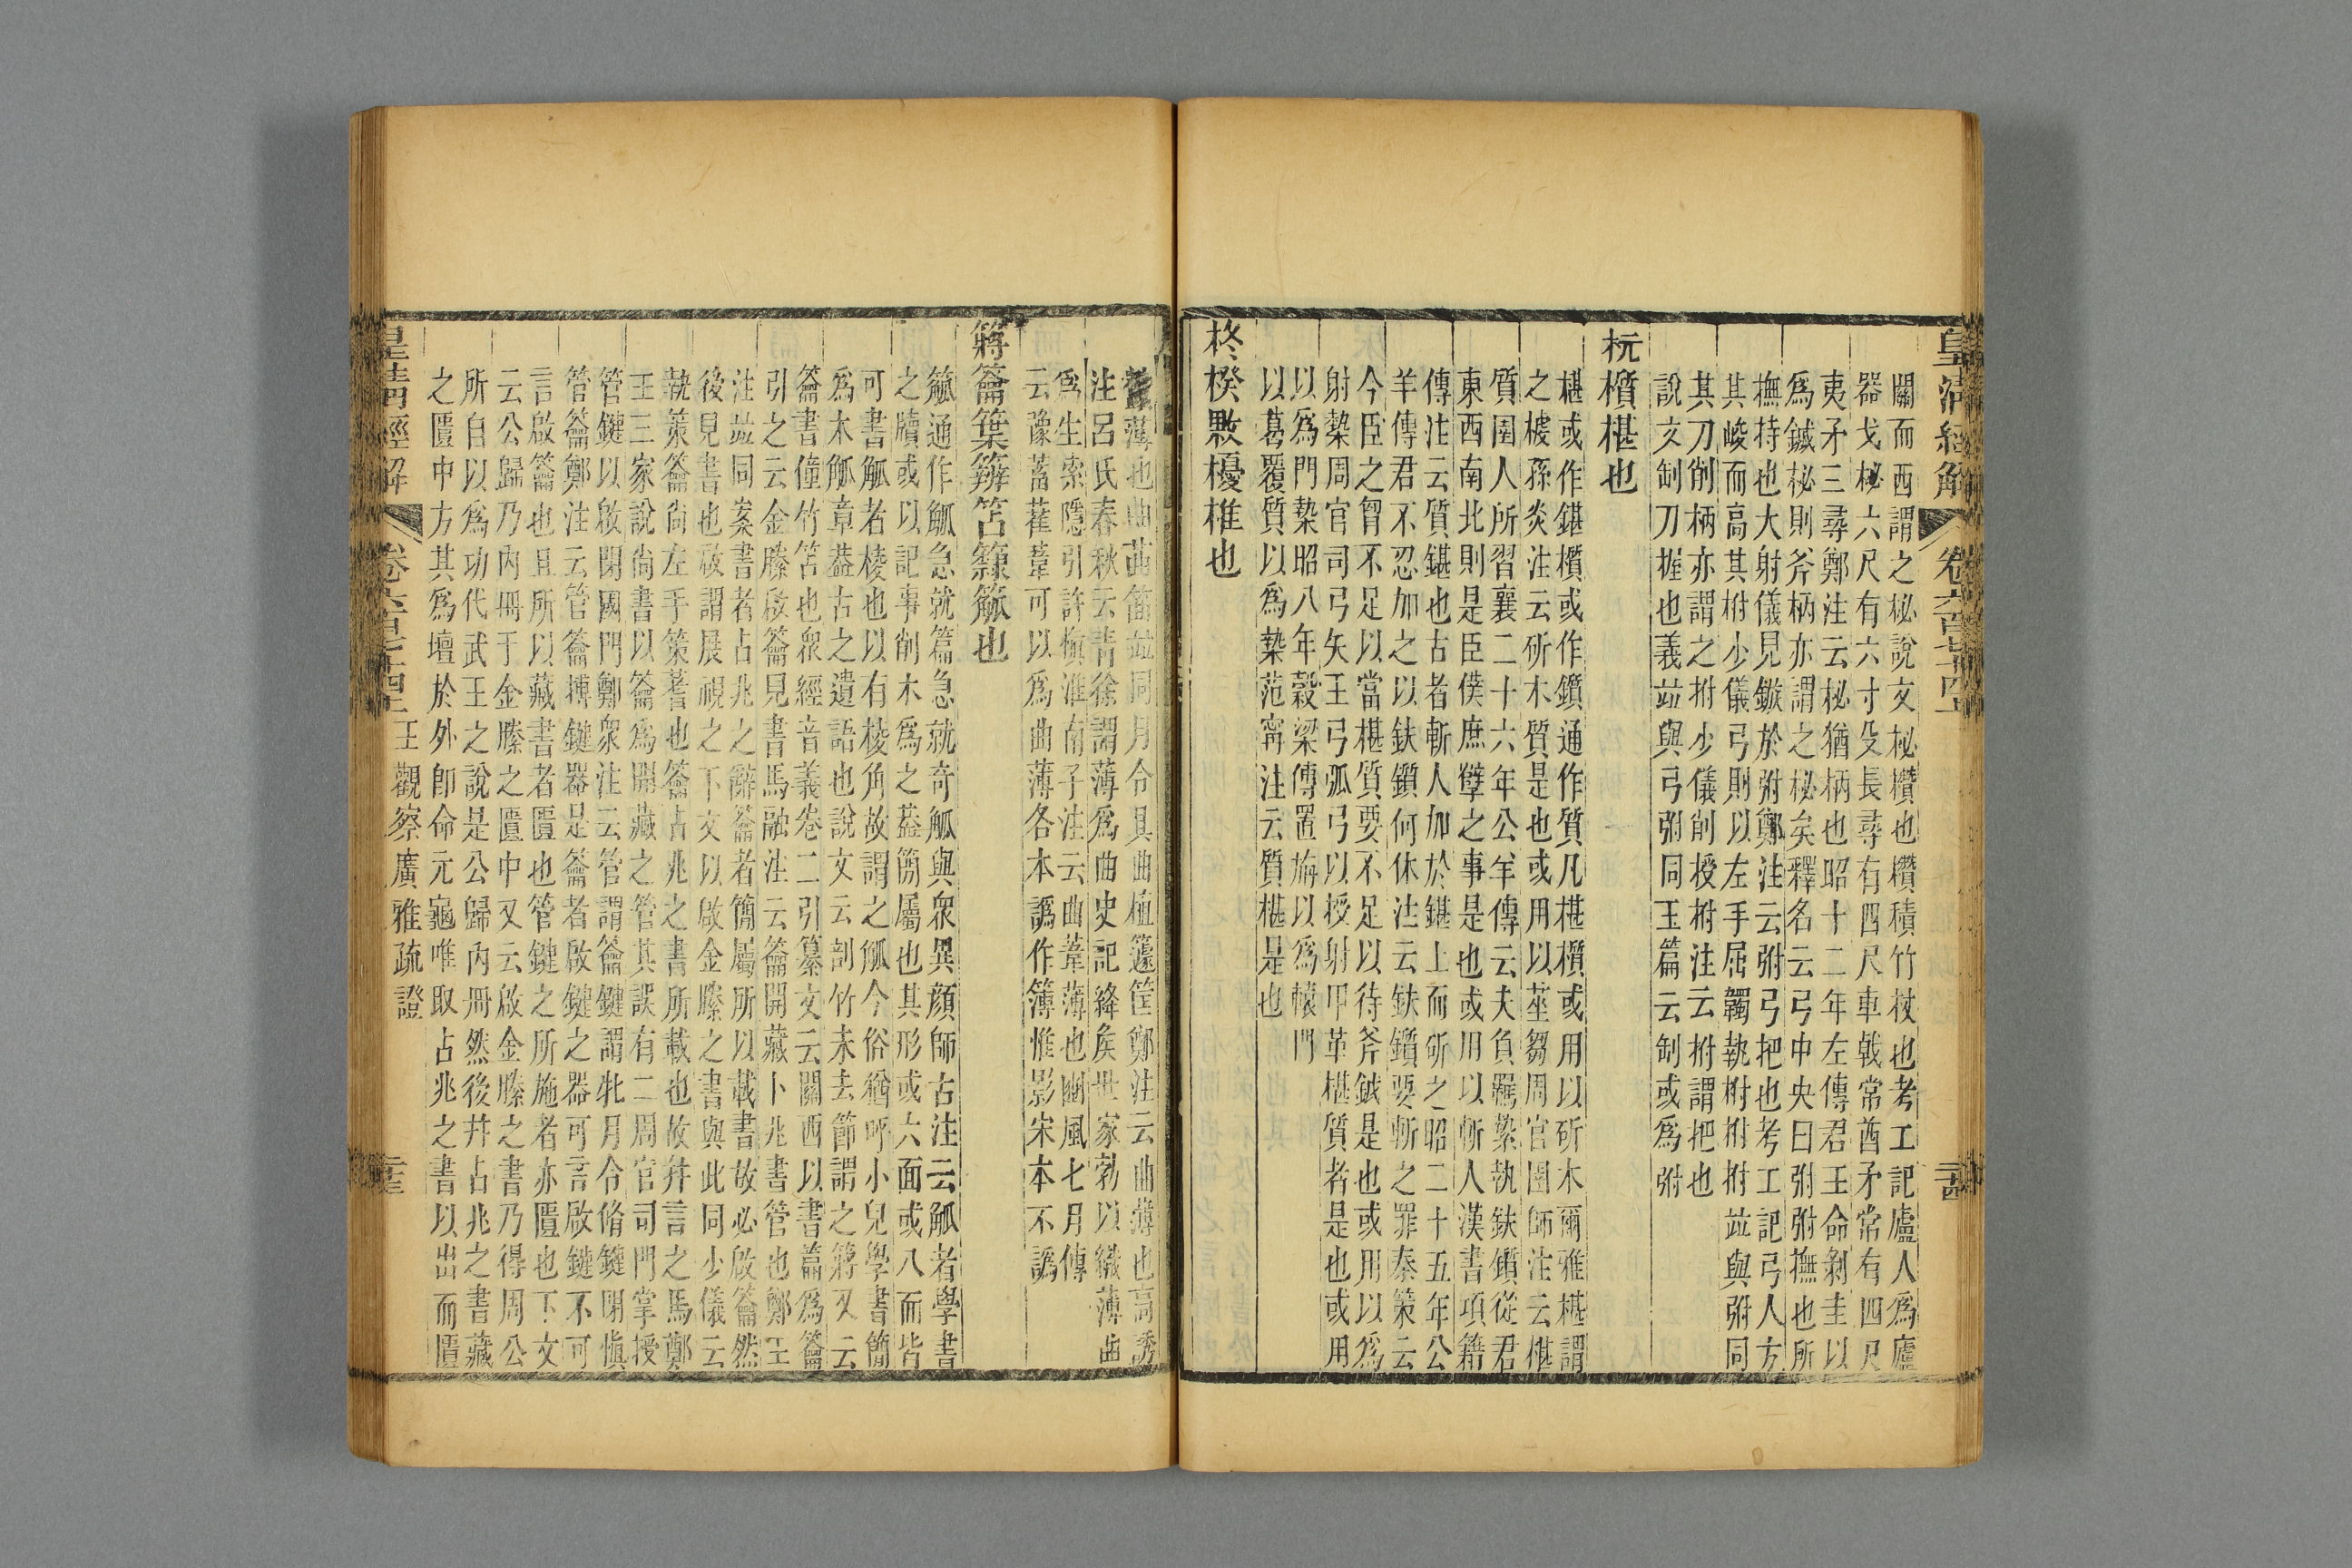 皇清經解 卷六百七十四上 二十四
關而西謂之柲說文柲欑也欑積竹杖也考工記廬人爲廬
器戈柲六尺有六寸殳長尋有四尺車戟常酋矛常有四尺
夷矛三尋鄭注云柲猶柄也昭十二年左傳君王命剝圭以
爲鏚柲則斧柄亦謂之柲柲矣釋名云弓中央曰弣弣撫也所
撫持也大射儀見鏃於弣鄭注云弣弓把也考工記弓人方
其峻而高其柎少儀弓則以左手屈韣執柎柎柎竝與弣同
其刀削柄亦謂之柎少儀削授柎注云柎謂把也
說文刏刀握也義竝與弓弣同玉篇云刏或爲弣
杬櫍椹也
椹或作鍖櫍或作鑕通作質凡椹櫍或用以斫木爾雅椹謂
之榩孫炎注云斫木質是也或用以莝芻周官圉師注云椹
質圉人所習襄二十六年公羊傳云夫負羈縶執鈇鑕從君
東西南北則是臣僕庶孽之事是也或用以斬人漢書項籍
傳注云質鍖也古者斬人加於鍖上而斫之昭二十五年公
羊傳君不忍加之以鈇鑕何休注云鈇鑕要斬之罪秦策云
今臣之胷不足以當椹質要不足以待斧鉞是也或用以爲
射槷周官司弓矢王弓弧弓以授射甲革椹質者是也或用
以爲門槷昭八年穀梁傳置旃以爲轅門
以葛覆質以爲槷范甯注云質椹是也
柊楑櫻椎也
薄也曲苖笛竝同月令具曲植籧筐鄭注云曲薄也高誘
注呂氏春秋云靑徐謂薄爲曲史記絳矦世家勃以織薄曲
爲生索隱引許愼淮南子注云曲葦薄也豳風七月傳
云豫蓄萑葦可以爲曲薄各本譌作簿惟影宋本不譌
籥䈎笘籙觚也
觚通作觚急就篇急就奇觚與衆異顏師古注云觚者學書
之牘或以記事削木爲之葢簡屬也其形或六面或八面皆
可書觚者棱也以有棱角故謂之觚今俗猶呼小兒學書簡
爲木觚章葢古之遺語也說文云剖竹未去節謂之䉃又云
籥書僮竹笘也衆經音義卷二引纂文云關西以書篇爲籥
引之云金縢啟籥見書馬融注云籥開藏卜兆書管也鄭王
注竝同案書者占兆之辭籥者簡屬所以載書故必啟籥然
後見書也啟謂展視之下文以啟金縢之書與此同少儀云
執策籥尙左手策蓍也籥占兆之書所載也故并言之馬鄭
王三家說尙書以籥爲開藏之管其誤有二周官司門掌授
管鍵以啟閉國門鄭衆注云管謂籥鍵謂牡月令脩鍵閉愼
管籥鄭注云管籥搏鍵器是籥者啟鍵之器可言啟鍵不可
言啟籥也且所以藏書者匱也管鍵之所施者亦匱也下文
云公歸乃內冊于金縢之匱中又云啟金縢之書乃得周公
所自以爲功代武王之說是公歸內冊然後并占兆之書藏
之匱中方其爲壇於外卽命元龜唯取占兆之書以出而匱
皇清經解 卷六百七十四上 王觀察廣雅疏證 二十五